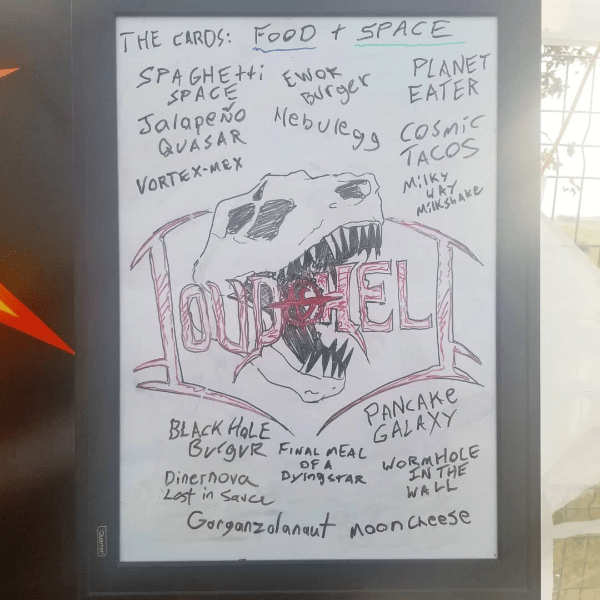 THE CARDS: FOOD + SPACE
SPAGHEtti
SPACE
Ewok
Burger
PLANET
EATER
Jalapeño
QUASAR
Nebulegg
COSMIC
TACOS
VORTEX-MEX
Milky
WAY
Milkshake
LOUD@HELL
BLACK HOLE
BurguR
FINAL MEAL
OF A
DyingSTAR
PANCAKE
GALAXY
Dinernova
Lost in Sauce
WORMHOLE
IN THE
WALL
Gorganzolanaut
MOON CHEESE
Quartet